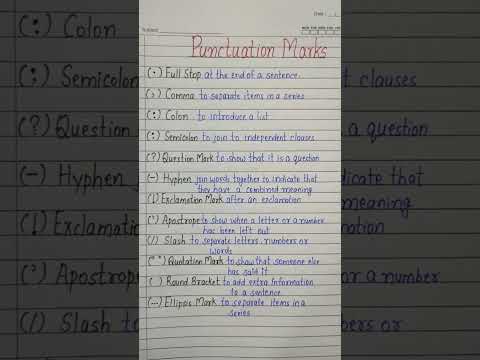 Date :
Punctuation Marks
(.) Full Stop at the end of a sentence.
(,) Comma to separate items in a series
(:) Colon to introduce a list
(;) Semicolon to join to independent clauses
(?) Question Mark to show that it is a question
(-) Hyphen join words together to indicate that
they have a combined meaning
(!) Exclamation Mark after an exclamation
(') Apostrope to show when a letter or a number
has been left out
(/) Slash to separate letters, numbers or
words
(" ") Quotation Mark to show that someone else
has said it
( ) Round Bracket to add extra information
to a sentence
(...) Ellipis Mark to separate items in a
series